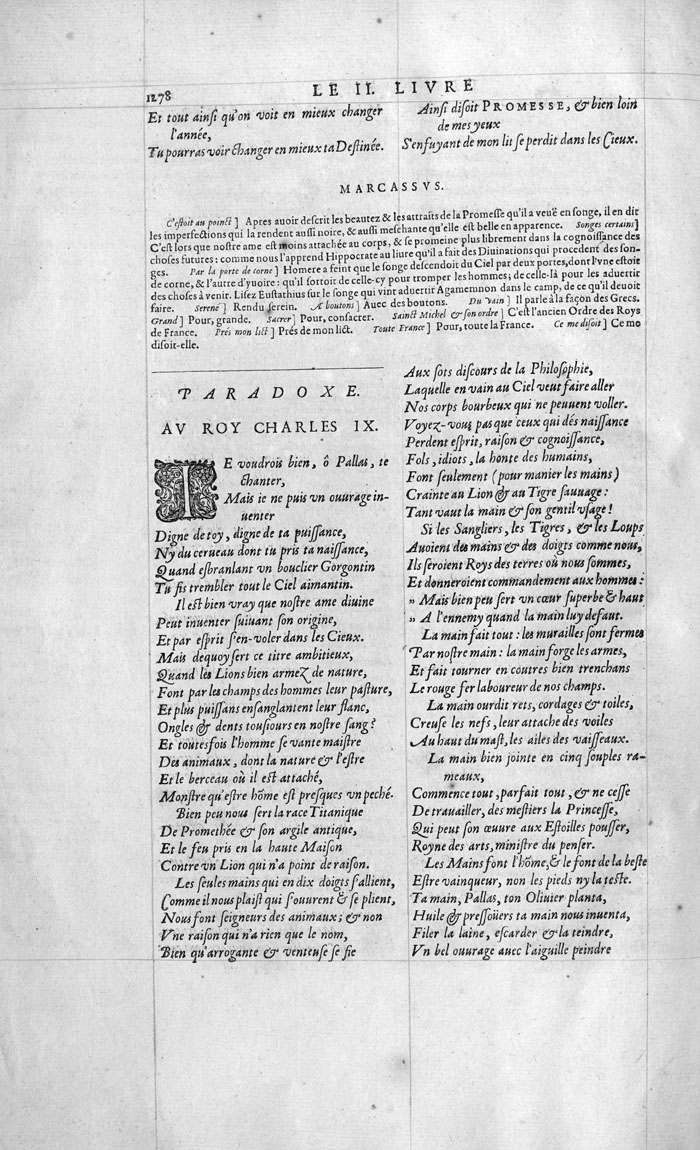 1278
LE II. LIVRE
Et tout ainſi qu'on voit en mieux changer
l'année,
Tu pourras voir changer en mieux ta Deſtinée.
Ainſi diſoit PROMESSE, & bien loin
de mes yeux
S'enfuyant de mon lit ſe perdit dans les Cieux.
MARCASSVS.
C'eſtoit au poinct] Apres auoir deſcrit les beautez & les attraits de la Promeſſe qu'il a veuë en ſonge, il en dit
les imperfections qui la rendent auſſi noire, & auſſi meſchante qu'elle eſt belle en apparence. Songes certains]
C'eſt lors que noſtre ame eſt moins attachée au corps, & ſe promeine plus librement dans la cognoiſſance des
choſes futures: comme nous l'apprend Hippocrate au liure qu'il a fait des Diuinations qui procedent des ſon-
ges. Par la porte de corne] Homere a feint que le ſonge deſcendoit du Ciel par deux portes, dont l'vne eſtoit
de corne, & l'autre d'yuoire: qu'il ſortoit de celle-cy pour tromper les hommes; de celle-là pour les aduertir
des choſes à venir. Liſez Euſtathius ſur le ſonge qui vint aduertir Agamemnon dans le camp, de ce qu'il deuoit
faire. Serené] Rendu ſerein. A boutons] Auec des boutons. Du vain] Il parle à la façon des Grecs.
Grand] Pour, grande. Sacrer] Pour, conſacrer. Sainct Michel & ſon ordre] C'eſt l'ancien Ordre des Roys
de France. Prés mon lict] Prés de mon lict. Toute France] Pour, toute la France. Ce me diſoit] Ce me
diſoit-elle.
PARADOXE.
AV ROY CHARLES IX.
IE voudrois bien, ô Pallas, te
chanter,
Mais ie ne puis vn ouurage in-
uenter
Digne de toy, digne de ta puiſſance,
Ny du cerueau dont tu pris ta naiſſance,
Quand eſbranlant vn bouclier Gorgontin
Tu fis trembler tout le Ciel aimantin.
Il eſt bien vray que noſtre ame diuine
Peut inuenter ſuiuant ſon origine,
Et par eſprit s'en-voler dans les Cieux.
Mais dequoy ſert ce titre ambitieux,
Quand les Lions bien armez de nature,
Font par les champs des hommes leur paſture,
Et plus puiſſans enſanglantent leur flanc,
Ongles & dents touſiours en noſtre ſang?
Et toutesfois l'homme ſe vante maiſtre
Des animaux, dont la nature & l'eſtre
Et le berceau où il eſt attaché,
Monſtre qu'eſtre hõme eſt preſques vn peché.
Bien peu nous ſert la race Titanique
De Promethée & ſon argile antique,
Et le feu pris en la haute Maiſon
Contre vn Lion qui n'a point de raiſon.
Les ſeules mains qui en dix doigts s'allient,
Comme il nous plaiſt qui s'ouurent & ſe plient,
Nous font ſeigneurs des animaux; & non
Vne raiſon qui n'a rien que le nom,
Bien qu'arrogante & venteuſe ſe fie
Aux ſots diſcours de la Philoſophie,
Laquelle en vain au Ciel veut faire aller
Nos corps bourbeux qui ne peuuent voller.
Voyez-vous pas que ceux qui dés naiſſance
Perdent eſprit, raiſon & cognoiſſance,
Fols, idiots, la honte des humains,
Font ſeulement (pour manier les mains)
Crainte au Lion & au Tigre ſauuage:
Tant vaut la main & ſon gentil vſage!
Si les Sangliers, les Tigres, & les Loups
Auoient des mains & des doigts comme nous,
Ils ſeroient Roys des terres où nous ſommes,
Et donneroient commandement aux hommes:
" Mais bien peu ſert vn cœur ſuperbe & haut
" A l'ennemy quand la main luy defaut.
La main fait tout: les murailles ſont fermes
Par noſtre main: la main forge les armes,
Et fait tourner en coutres bien trenchans
Le rouge fer laboureur de nos champs.
La main ourdit rets, cordages & toiles,
Creuſe les nefs, leur attache des voiles
Au haut du maſt, les ailes des vaiſſeaux.
La main bien jointe en cinq ſouples ra-
meaux,
Commence tout, parfait tout, & ne ceſſe
De trauailler, des meſtiers la Princeſſe,
Qui peut ſon œuure aux Eſtoilles pouſſer,
Royne des arts, miniſtre du penſer.
Les Mains font l'hõme, & le font de la beſte
Eſtre vainqueur, non les pieds ny la teſte.
Ta main, Pallas, ton Oliuier planta,
Huile & preſſoüers ta main nous inuenta,
Filer la laine, eſcarder & la teindre,
Vn bel ouurage auec l'aiguille peindre